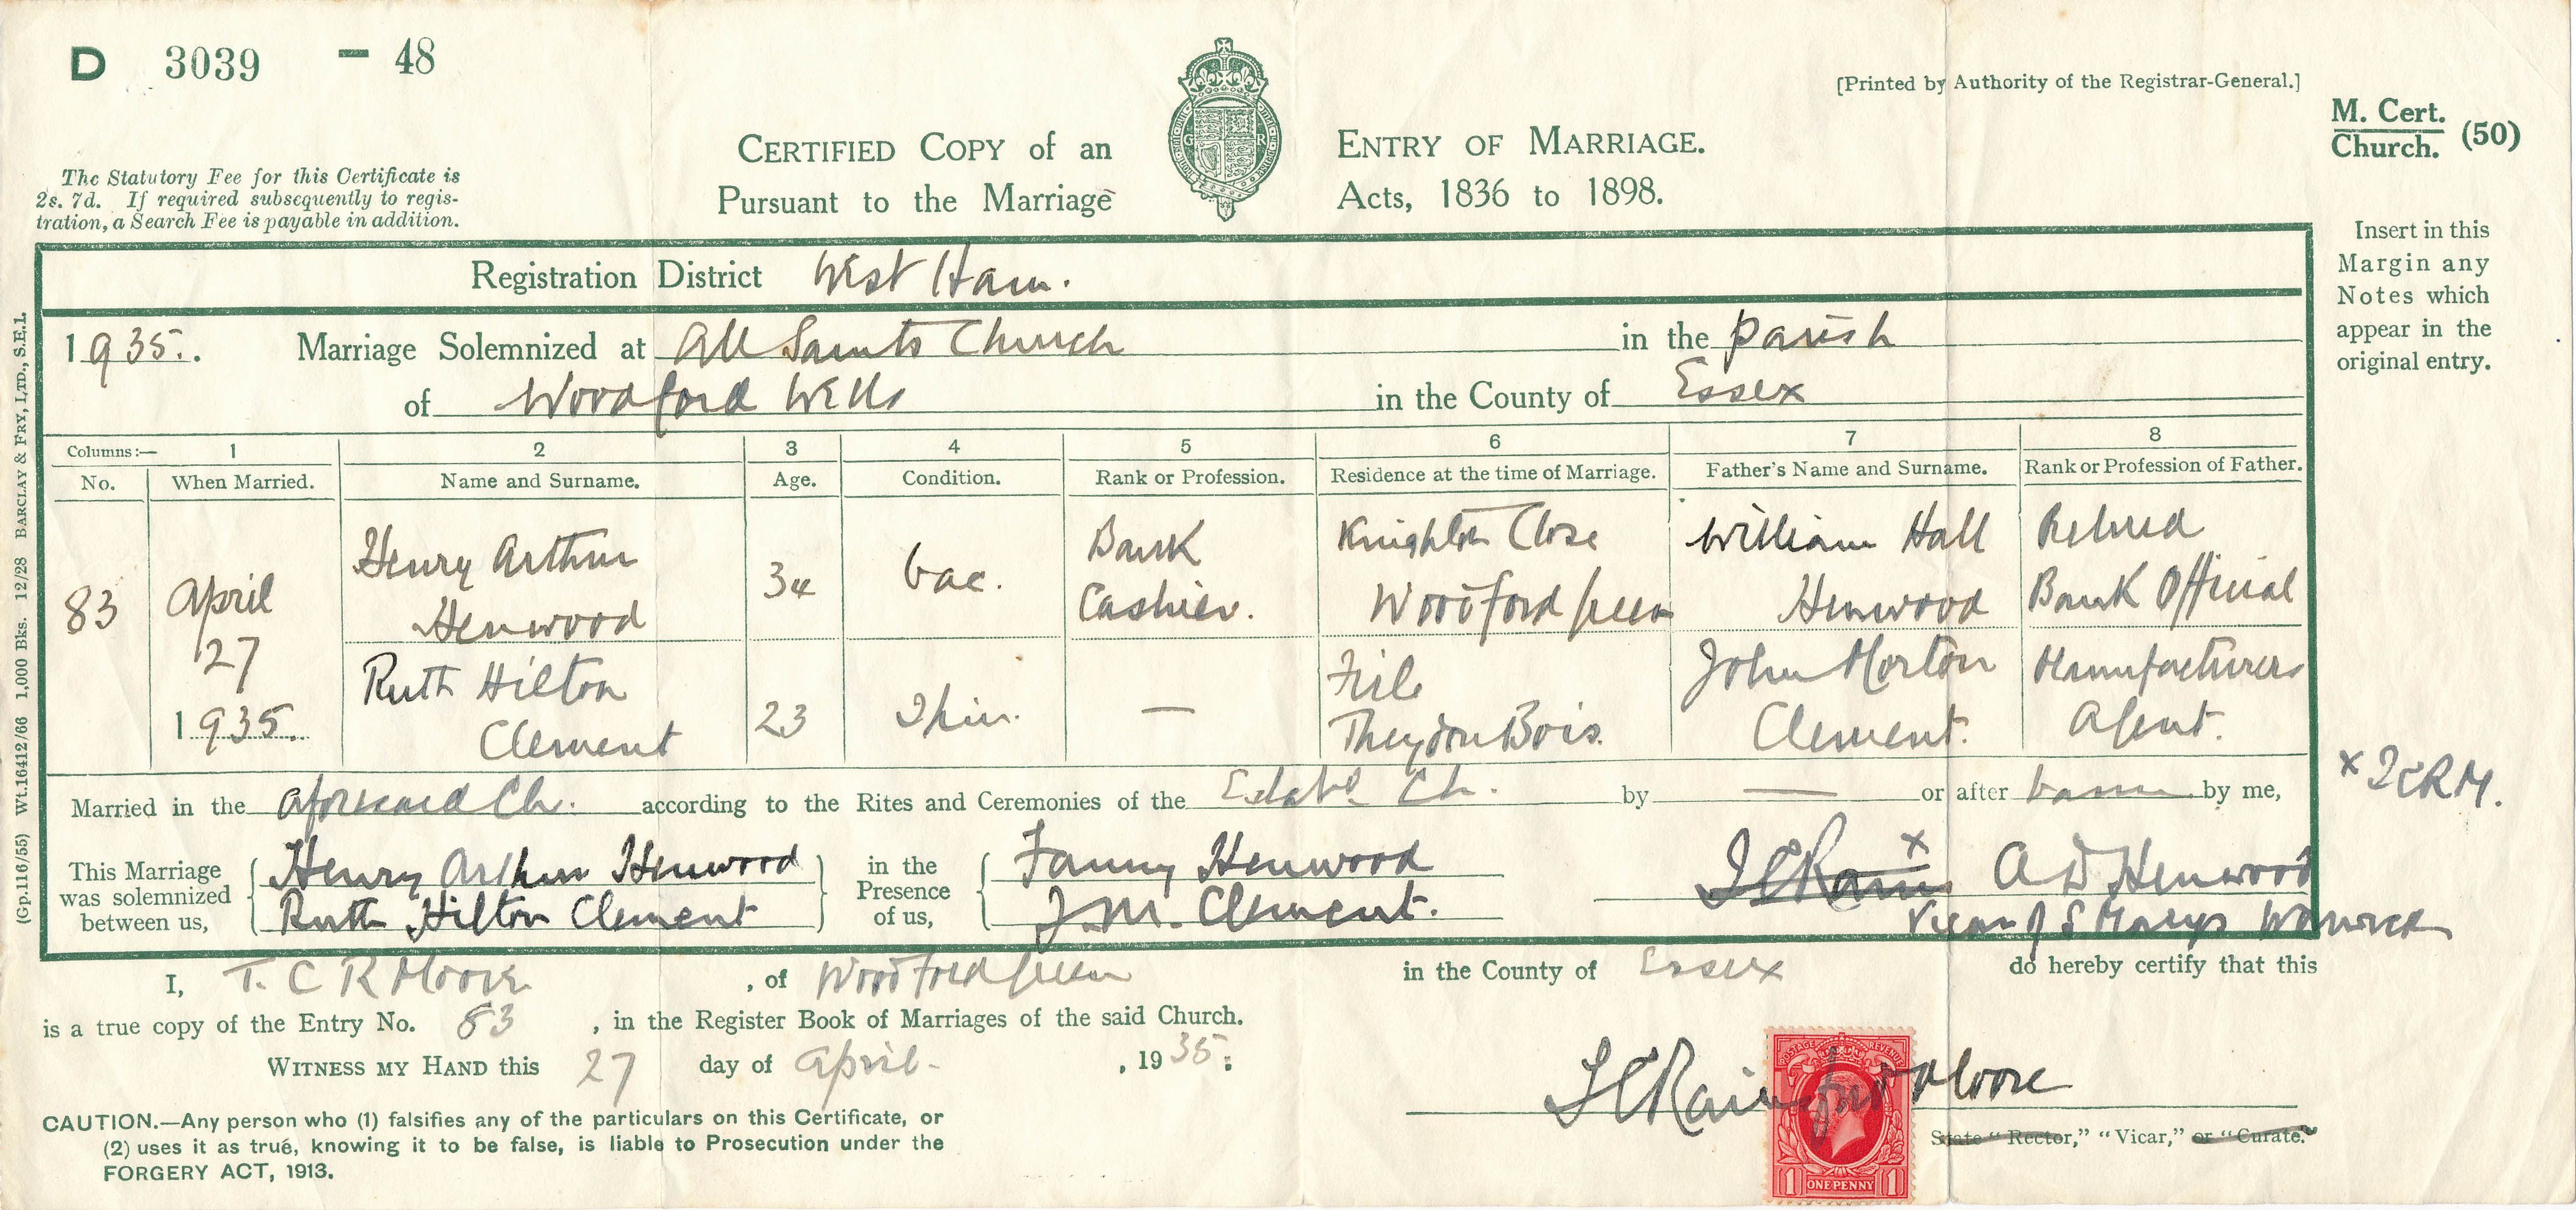 D 3039 - 48
[Printed by Authority of the Registrar-General.]
M. Cert.
Church. (50)
The Statutory Fee for this Certificate is
2s. 7d. If required subsequently to regis-
tration, a Search Fee is payable in addition.
CERTIFIED COPY of an ENTRY OF MARRIAGE.
Pursuant to the Marriage Acts, 1836 to 1898.
Insert in this
Margin any
Notes which
appear in the
original entry.
(Gp.116/55) Wt.16412/66 1,000 Bks. 12/28 BARCLAY & FRY, LTD., S.E.1.
Registration District West Ham.
1935. Marriage Solemnized at All Saints Church in the parish
of Woodford Wells in the County of Essex
Columns:— 1 2 3 4 5 6 7 8
No. When Married. Name and Surname. Age. Condition. Rank or Profession. Residence at the time of Marriage. Father's Name and Surname. Rank or Profession of Father.
83 April 27 1935.
Henry Arthur Henwood 34 bac. Bank Cashier. Knighton Close Woodford Green William Hall Henwood Retired Bank Official
Ruth Hilton Clement 23 — Firle Theydon Bois. John Morton Clement. Manufacturers Agent.
Married in the aforesaid Ch. according to the Rites and Ceremonies of the Estabd Ch. by — or after banns by me,
x TCRM.
This Marriage was solemnized between us,
Henry Arthur Henwood
Ruth Hilton Clement
in the Presence of us,
Fanny Henwood
J.M. Clement.
x A D Henwood
Vicar of S Marys Warwick
I, T. C R Moore, of Woodford Green in the County of Essex do hereby certify that this
is a true copy of the Entry No. 83, in the Register Book of Marriages of the said Church.
WITNESS MY HAND this 27 day of April, 1935:
Moore
State "Rector," "Vicar," or "Curate."
POSTAGE REVENUE
1 ONE PENNY 1
CAUTION.—Any person who (1) falsifies any of the particulars on this Certificate, or
(2) uses it as true, knowing it to be false, is liable to Prosecution under the
FORGERY ACT, 1913.